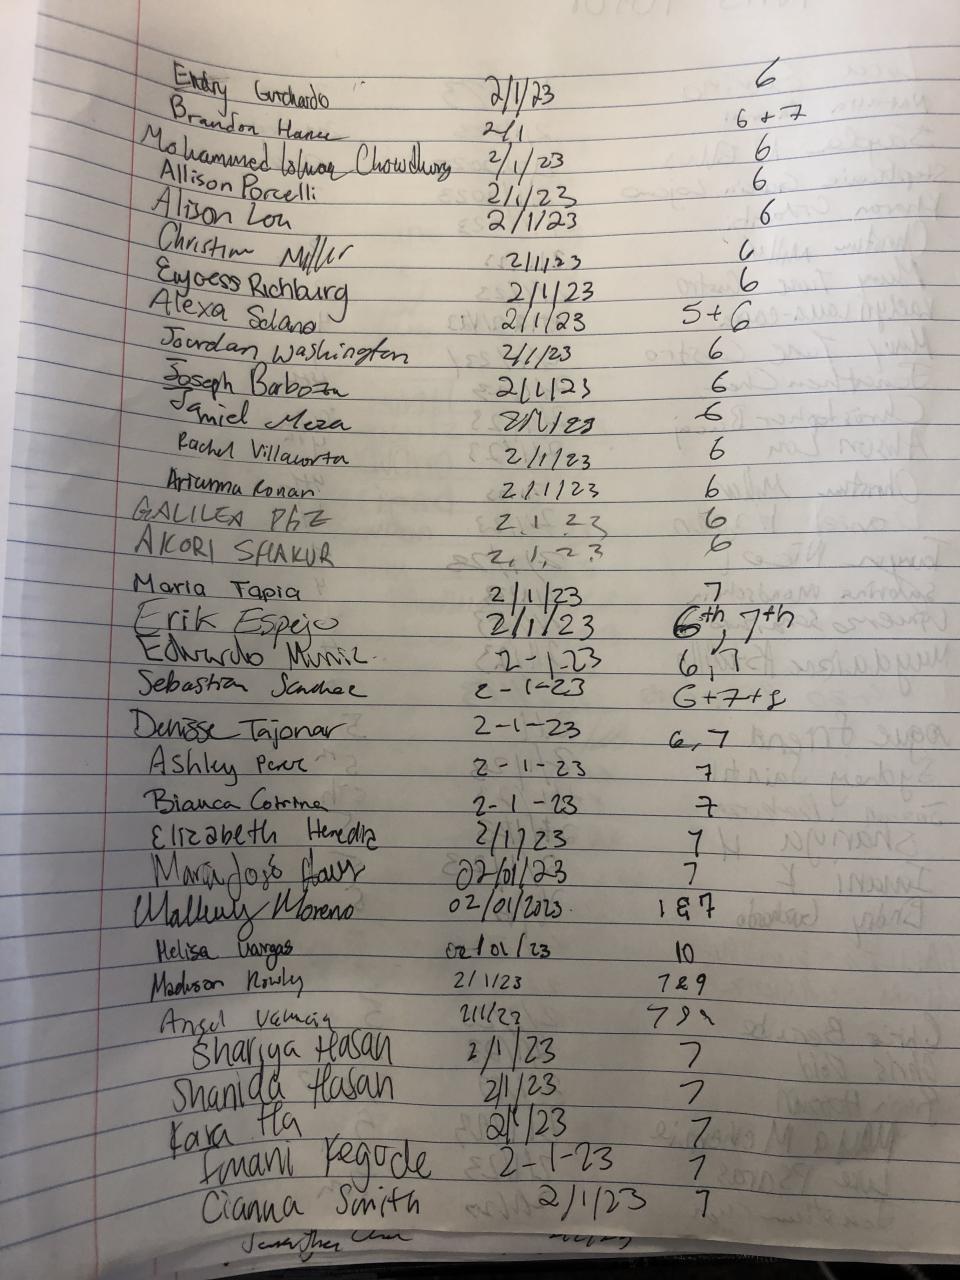 Endry Guchardo 2/1/23 6
Brandon Hance 2/1 6 + 7
Mohammed Ishraq Chowdhury 2/1/23 6
Allison Porcelli 2/1/23 6
Alison Lou 2/1/23 6
Christian Miller 2/1/23 6
Richburg 2/1/23 6
Alexa Solano 2/1/23 5+6
Jourdan Washington 2/1/23 6
Joseph Barboza 2/1/23 6
Jamiel Meza 2/1/23 6
Rachel Villacorta 2/1/23 6
Arianna Ronan 2/1/23 6
GALILEA PAZ 2.1.23 6
AKORI SHAKUR 2,1,23 6
Maria Tapia 2/1/23 7
Erik Espejo 2/1/23 6th, 7th
Eduardo Muniz 2-1-23 6,7
Sebastian Sanchez 2-1-23 6+7+8
Denisse Tajonar 2-1-23 6,7
Ashley Perez 2-1-23 7
Bianca 2-1-23 7
Elizabeth Heredia 2/1/23 7
Maria José 02/01/23 7
Moreno 02/01/2023. 1 & 7
Melisa Vargas 02/01/23 10
Madison Rowly 2/1/23 7 & 9
Angel Valencia 2/1/23 7
Shariya Hasan 2/1/23 7
Shanida Hasan 2/1/23 7
Kara Ha 2/1/23 7
Imani Kegode 2-1-23 7
Cianna Smith 2/1/23 7